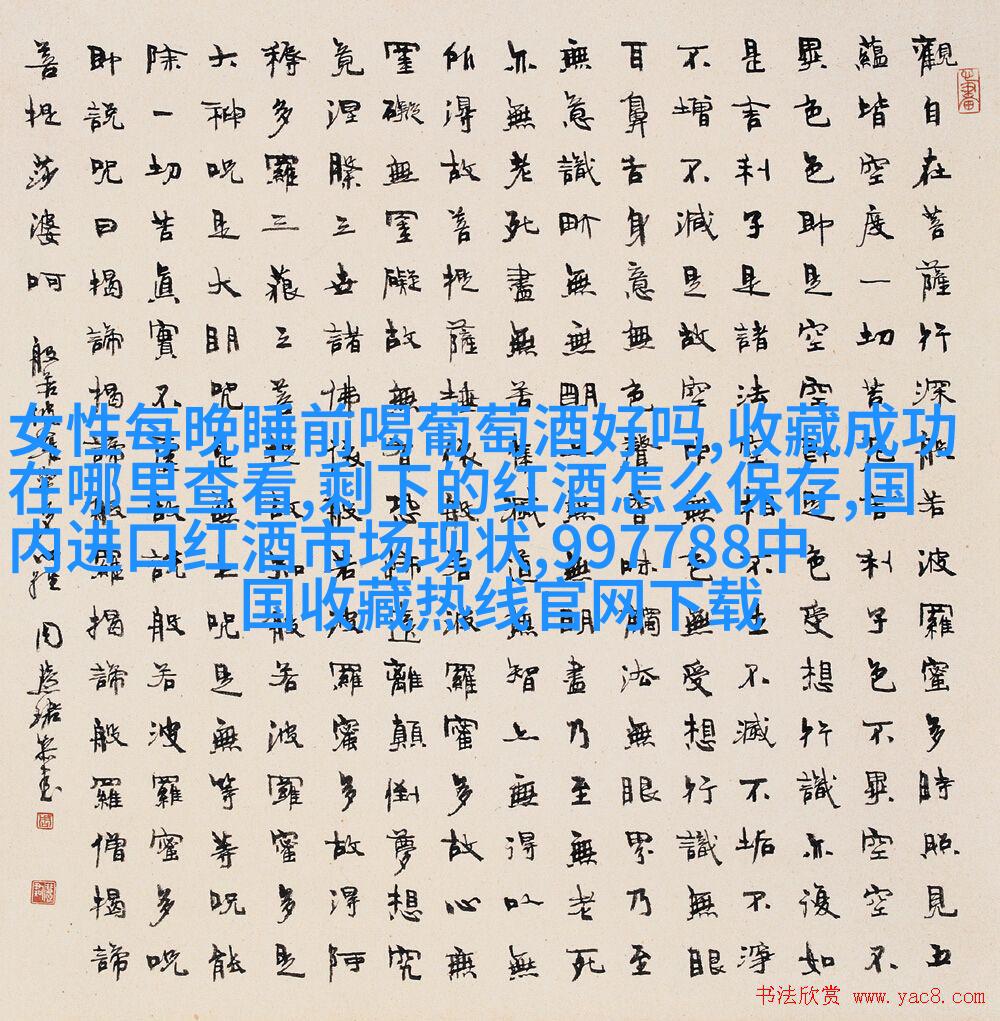 觀自在菩薩行深般若波羅蜜多時照見五
蘊皆空度一切苦厄舍利子色不異空空不
異色色即是空空即是色受想行識亦復如
是舍利子是諸法空相不生不滅不垢不淨
不增不減是故空中無色無受想行識無眼
耳鼻舌身意無色聲香味觸法無眼界乃至
無意識界無無明亦無無明盡乃至無老死
亦無老死盡無苦集滅道無智亦無得以無
所得故菩提薩埵依般若波羅蜜多故心無
罣礙無罣礙故無有恐怖遠離顛倒夢想究
竟涅槃三世諸佛依般若波羅蜜多故得阿
耨多羅三藐三菩提故知般若波羅蜜多是
大神咒是大明咒是無上咒是無等等咒能
除一切苦真實不虛故說般若波羅蜜多咒
即說咒曰揭諦揭諦般羅揭諦般羅僧揭諦
菩提莎婆呵
般若波羅蜜多心經 周慧珺恭書
女性每晚睡前喝葡萄酒好吗,收藏成功
在哪里查看,剩下的红酒怎么保存,国
内进口红酒市场现状,997788中
国收藏热线官网下载
书法欣赏 www.yac8.com